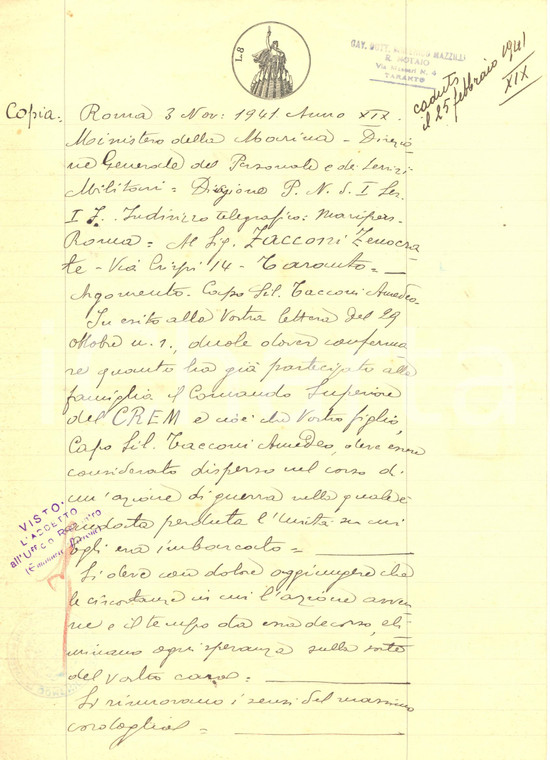 L.8
CAV. DOTT. MAZZILLI
R. NOTAIO
Via Massari N. 4
TARANTO
caduto
il 25 febbraio 1941
XIX
Copia= Roma 3 Nov: 1941 Anno XIX.
Ministero della Marina - Direzio
ne Generale del Personale e dei Servizi
Militari = Divisione P. N. S. I Sez.
I S. Indirizzo telegrafico: Maripers-
Roma= Al Sig. Zacconi Zenocra-
te - Via Crispi 14 - Taranto=
Argomento- Capo Sil. Tacconi Amedeo.
In esito alla Vostra lettera del 29
Ottobre u. s., duole dover conferma
re quanto ha già partecipato alla
famiglia il Comando Superiore
del CREM e cioè che Vostro figlio,
Capo Sil. Tacconi Amedeo, deve essere
considerato disperso nel corso di
un'azione di guerra nella quale è
andata perduta l'Unità su cui
egli era imbarcato=
Si deve con dolore aggiungere che
le circostanze in cui l'azione avven
ne e il tempo da essa decorso, eli
minano ogni speranza sulla sorte
del Vostro caro=
Si rinnovano i sensi del massimo
cordoglio=
VISTO:
L'ACCETTO
all'Ufficio Registro